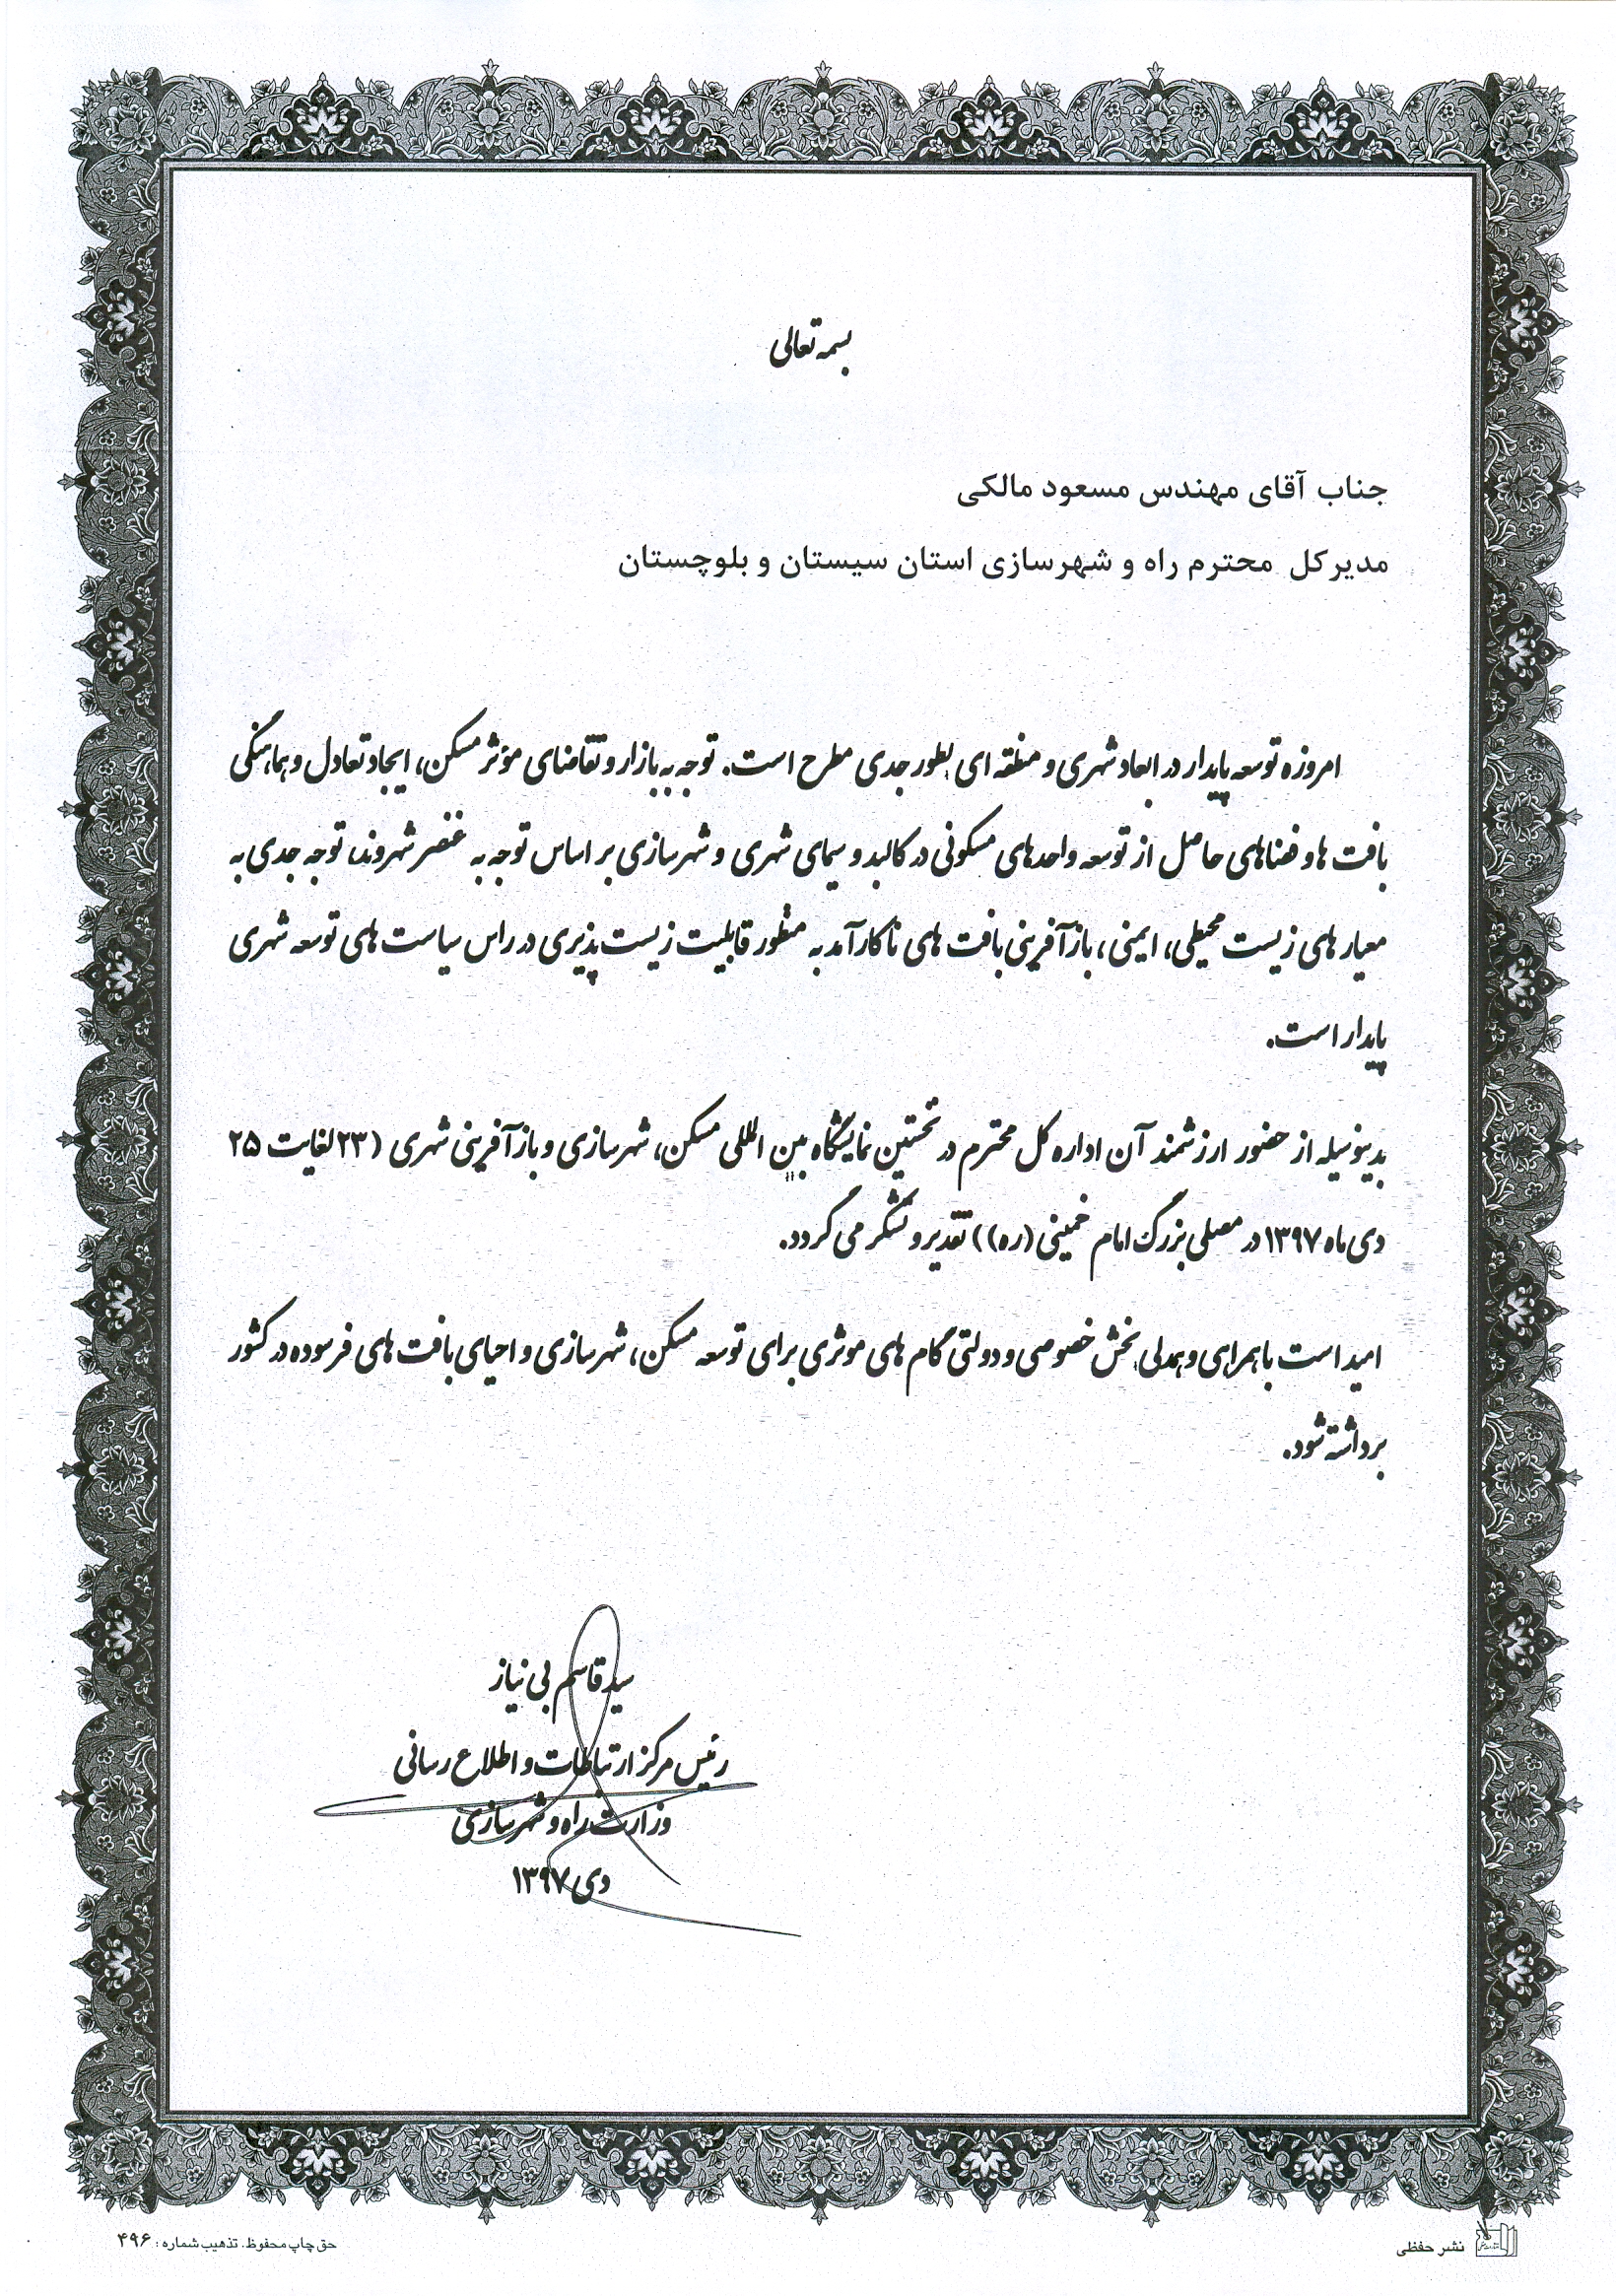 بسمه تعالی
جناب آقای مهندس مسعود مالکی
مدیرکل محترم راه و شهرسازی استان سیستان و بلوچستان
امروزه توسعه پایدار در ابعاد شهری و منطقه ای بطور جدی مطرح است. توجه به بازار و تقاضای مؤثر مسکن، ایجاد تعادل و هماهنگی
بافت ها و فضاهای حاصل از توسعه واحدهای مسکونی در کالبد و سیمای شهری و شهرسازی بر اساس توجه به عنصر شهروند، توجه جدی به
معیار های زیست محیطی، ایمنی، بازآفرینی بافت های ناکارآمد به منظور قابلیت زیست پذیری در راس سیاست های توسعه شهری
پایدار است.
بدینوسیله از حضور ارزشمند آن اداره کل محترم در نخستین نمایشگاه بین المللی مسکن، شهرسازی و بازآفرینی شهری (۲۳ لغایت ۲۵
دی ماه ۱۳۹۷ در مصلی بزرگ امام خمینی (ره)) تقدیر و تشکر می گردد.
امید است با همراهی و همدلی بخش خصوصی و دولتی گام های موثری برای توسعه مسکن، شهرسازی و احیای بافت های فرسوده در کشور
برداشته شود.
سید قاسم بی نیاز
رئیس مرکز ارتباطات و اطلاع رسانی
وزارت راه و شهرسازی
دی ۱۳۹۷
نشر حفظی
حق چاپ محفوظ. تذهیب شماره: ۴۹۶